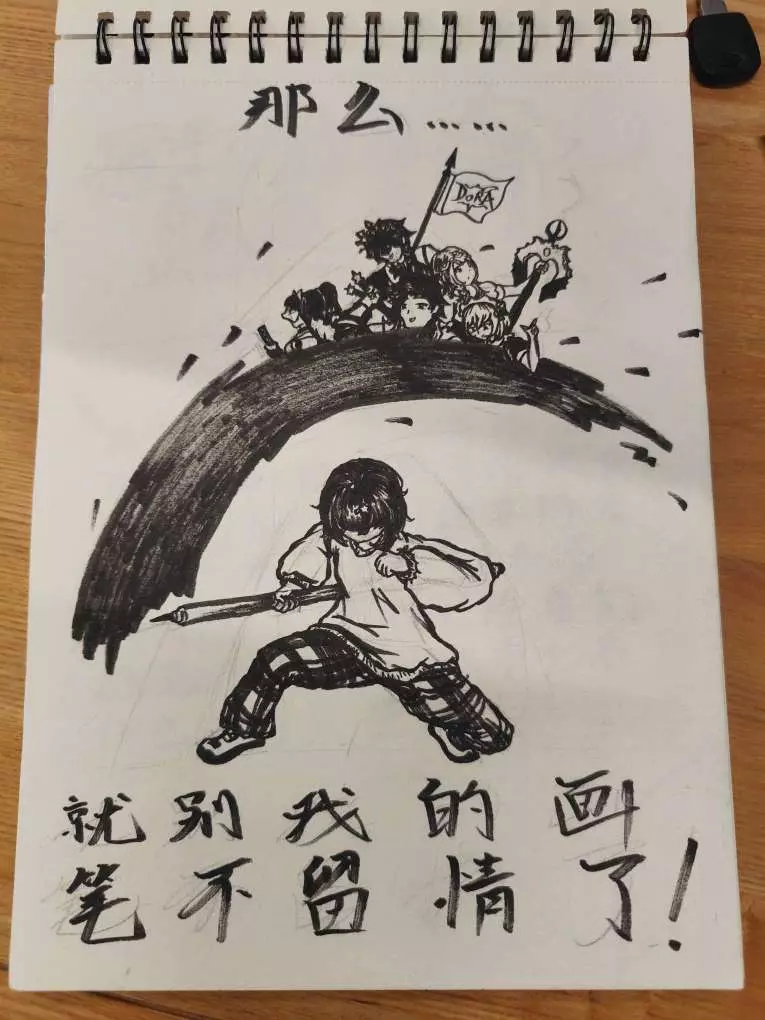 那么……
DORA
就别我的画
笔不留情了！